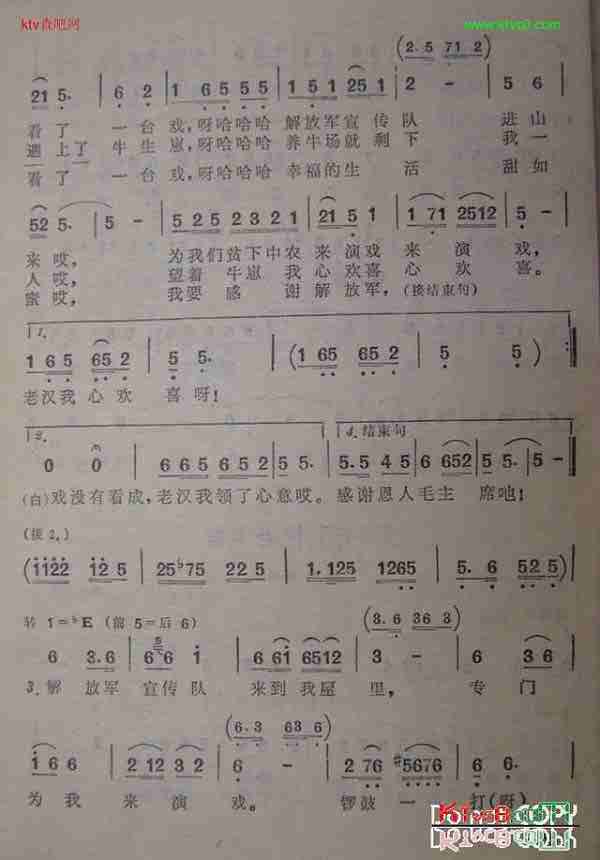 ktv音吧网
www.ktvo8.com
(2.5 71 2)
21 5. | 6 2 | 1 6 5 5 5 | 1 5 1 25 1 | 2 - | 5 6
看了 一台 戏,呀哈哈哈 解放军宣 传 队 进山
遇上了 牛生 崽,呀哈哈哈 养牛场就 剩 下 我一
看了 一台 戏,呀哈哈哈 幸福的生 活 甜如
52 5. | 5 - | 5 2 5 2 3 2 1 | 21 5 1 | 1 71 2512 | 5 -
来哎, 为我们贫下中农 来演戏 来 演 戏,
人哎, 望着 牛崽 我 心欢喜 心 欢 喜。
蜜哎, 我要 感 谢 解 放军,(接结束句)
1.
1 6 5 65 2 | 5 5. | (1 65 65 2 | 5 5) :||
老汉我 心欢 喜呀!
2.
4.结束句
0 0 | 6 6 5 6 5 2 | 5 5. | 5.5 4 5 | 6 652 | 5 5. | 5 - ||
(白)戏没有看成,老汉我领了心意哎。感谢恩人毛主 席吔!
(接2.)
(1122 12 5 | 25♭75 225 | 1.125 1265 | 5. 6 52 5)
转 1=♭E (前 5=后 6)
(3.6 36 3)
6 3.6 | 6 6 1 | 6 61 6512 | 3 - | 6 3 3
3.解 放军 宣传队 来到 我屋 里, 专 门
(6.3 63 6)
1 6 6 | 2 12 3 2 | 6 - | 2 76 #5676 | 6 6.
为 我 来 演 戏。 锣鼓 一 打(呀)